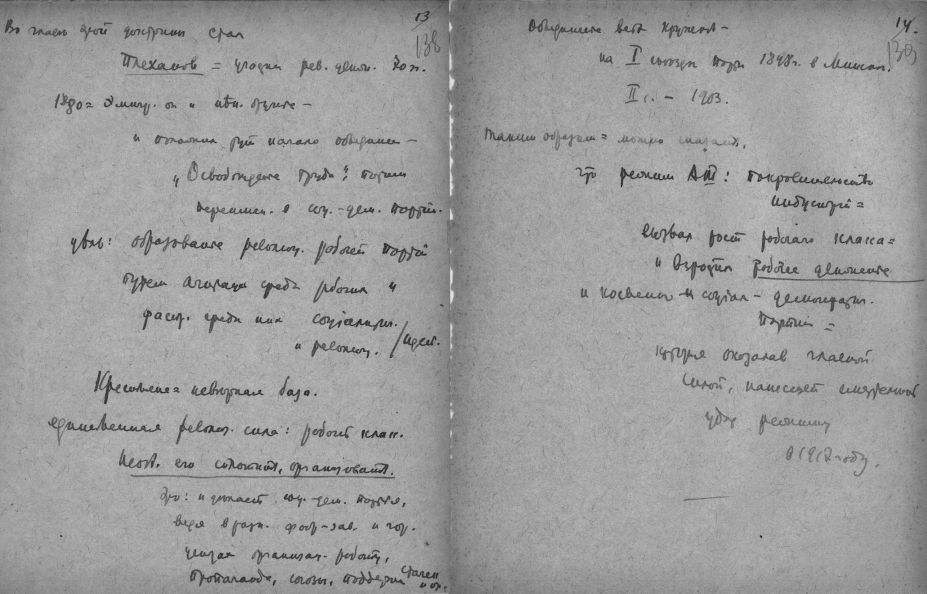 13
138
Во главе этой доктрины стал
Плеханов = рев. движ.
1880 = Эмигр. он и др. группе –
и положил путь начало объедин –
„Освобождение Труда”: потом
переимен. в соц.-дем. партию.
цель: образование революц. рабочей партии
путем агитации среди рабочих и
распр. среди них социалистич.
и революц. / идей.
Крестьяне = неверная база.
единственная революц. сила: рабочий класс.
Необх. его сплотить, организовать.
Это: и делает соц.-дем. партия,
ведя в разн. фабр-зав. и гор.
организац. работу,
пропаганда, союзы, поддержка стачек
и пр.
14.
139
Объединение всех кружков –
на I съезде партии 1898 г. в Минске.
II с. – 1903.
Таким образом = можно сказать,
что режим А III: покровительство
индустрии =
вызвал рост рабочего класса =
и взрастил рабочее движение
и косвенно и социал-демократич.
партии =
которая оказалась главной
силой, нанесшей смертельный
удар режиму
в 1917-году.